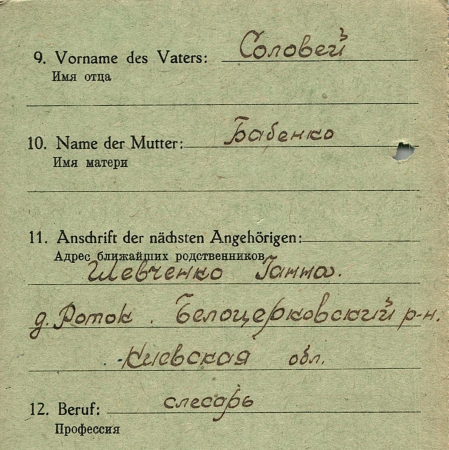 9. Vorname des Vaters: Соловей
Имя отца
10. Name der Mutter: Бабенко
Имя матери
11. Anschrift der nächsten Angehörigen:
Адрес ближайших родственников
Шевченко Ганна.
д. Роток. Белоцерковский р-н.
Киевская обл.
12. Beruf: слесарь
Профессия